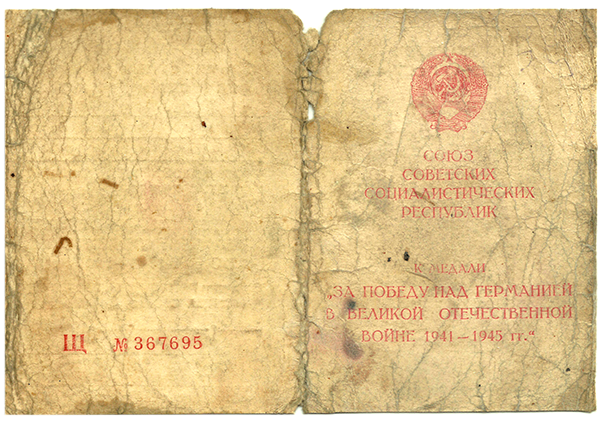 Щ № 367695
СОЮЗ
СОВЕТСКИХ
СОЦИАЛИСТИЧЕСКИХ
РЕСПУБЛИК
К МЕДАЛИ
„ЗА ПОБЕДУ НАД ГЕРМАНИЕЙ
В ВЕЛИКОЙ ОТЕЧЕСТВЕННОЙ
ВОЙНЕ 1941—1945 гг.“